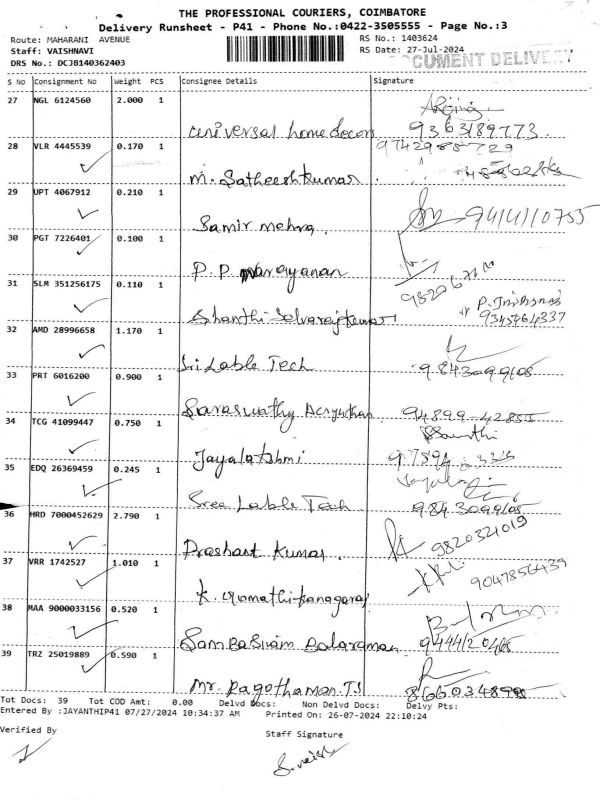 THE PROFESSIONAL COURIERS, COIMBATORE
Delivery Runsheet - P41 - Phone No.:0422-3505555 - Page No.:3
Route: MAHARANI AVENUE
RS No.: 1403624
Staff: VAISHNAVI
RS Date: 27-Jul-2024
DRS No.: DCJB140362403
DOCUMENT DELIVERY
S No Consignment No Weight PCS Consignee Details Signature
27 NGL 6124560 2.000 1
universal home decors 9363189773
28 VLR 4445539 0.170 1 9742988729
M. Satheeshkumar
29 UPT 4067912 0.210 1
Samir mehra. 9414110755
30 PGT 7226401 0.100 1
P.P. narayanan
31 SLM 351256175 0.110 1
Shanthi Selvarajkumar
32 AMD 28996658 1.170 1
Sri Lable Tech 9843099108
33 PRT 6016200 0.900 1
Saraswathy 94899-42855
34 TCG 41099447 0.750 1
Jayalatshmi
35 EDQ 26369459 0.245 1
Sree Lable Tech 9843099108
36 HRD 7000452629 2.790 1
Prashant Kumar. 9820321019
37 VRR 1742527 1.010 1
K. Gomathikanagaraj
38 MAA 9000033156 0.520 1
Sambasivam Balaraman
39 TRZ 25019889 0.590 1
Mr. Ragothaman.T.S
Tot Docs: 39 Tot COD Amt: 0.00 Delvd Docs: Non Delvd Docs: Delvy Pts:
Entered By :JAYANTHIP41 07/27/2024 10:34:37 AM Printed On: 26-07-2024 22:10:24
Verified By Staff Signature